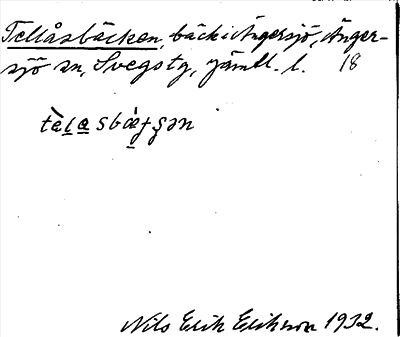 Tellåsbäcken, bäck i Ängersjö, Änger-
sjö sn, Svegs tg, Jämtl. l. 18
Nils Erik Eriksson 1932.